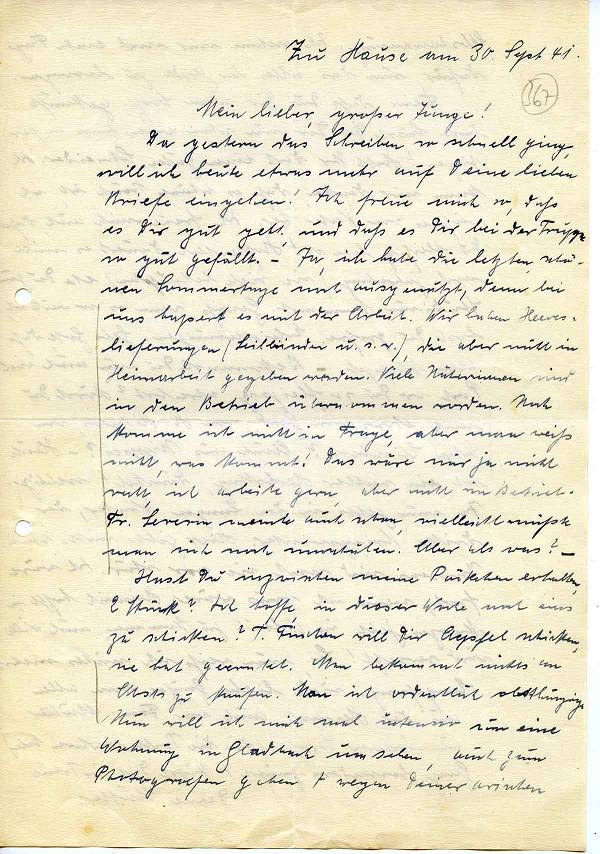 Zu Hause am 30. Sept 41.
367
Mein lieber, großer Junge!
Da gestern das Schreiben so schnell ging,
will ich heute etwas mehr auf Deine lieben
Briefe eingehen! Ich freue mich so, daß
es Dir gut geht, und daß es Dir bei der Truppe
so gut gefällt. - Ja, ich habe die letzten schö-
nen Sommertage noch ausgenützt, denn bei
uns hapert es mit der Arbeit. Wir haben Heeres-
lieferungen (Leibbinden u. s. w.), die aber nicht in
Heimarbeit gegeben werden. Viele Näherinnen sind
in den Betrieb übernommen worden. Noch
komme ich nicht in Frage, aber man weiß
nicht, was kommt! Das wäre mir ja nicht
recht, ich arbeite gern, aber nicht im Betrieb.
Fr. Severin meinte auch schon, vielleicht müßte
man sich noch umschulen. Aber als was? -
Hast Du inzwischen meine Päckchen erhalten,
2 Stück? Ich hoffe, in dieser Woche noch eins
zu schicken? T. Finchen will Dir Aepfel schicken,
sie hat geerntet. Man bekommt nichts an
Obst zu kaufen. Man ist ordentlich obsthungrig.
Nun will ich mich mal intensiv um eine
Wohnung in Gladbach umsehen, auch zum
Photografen gehen & wegen Deiner arischen